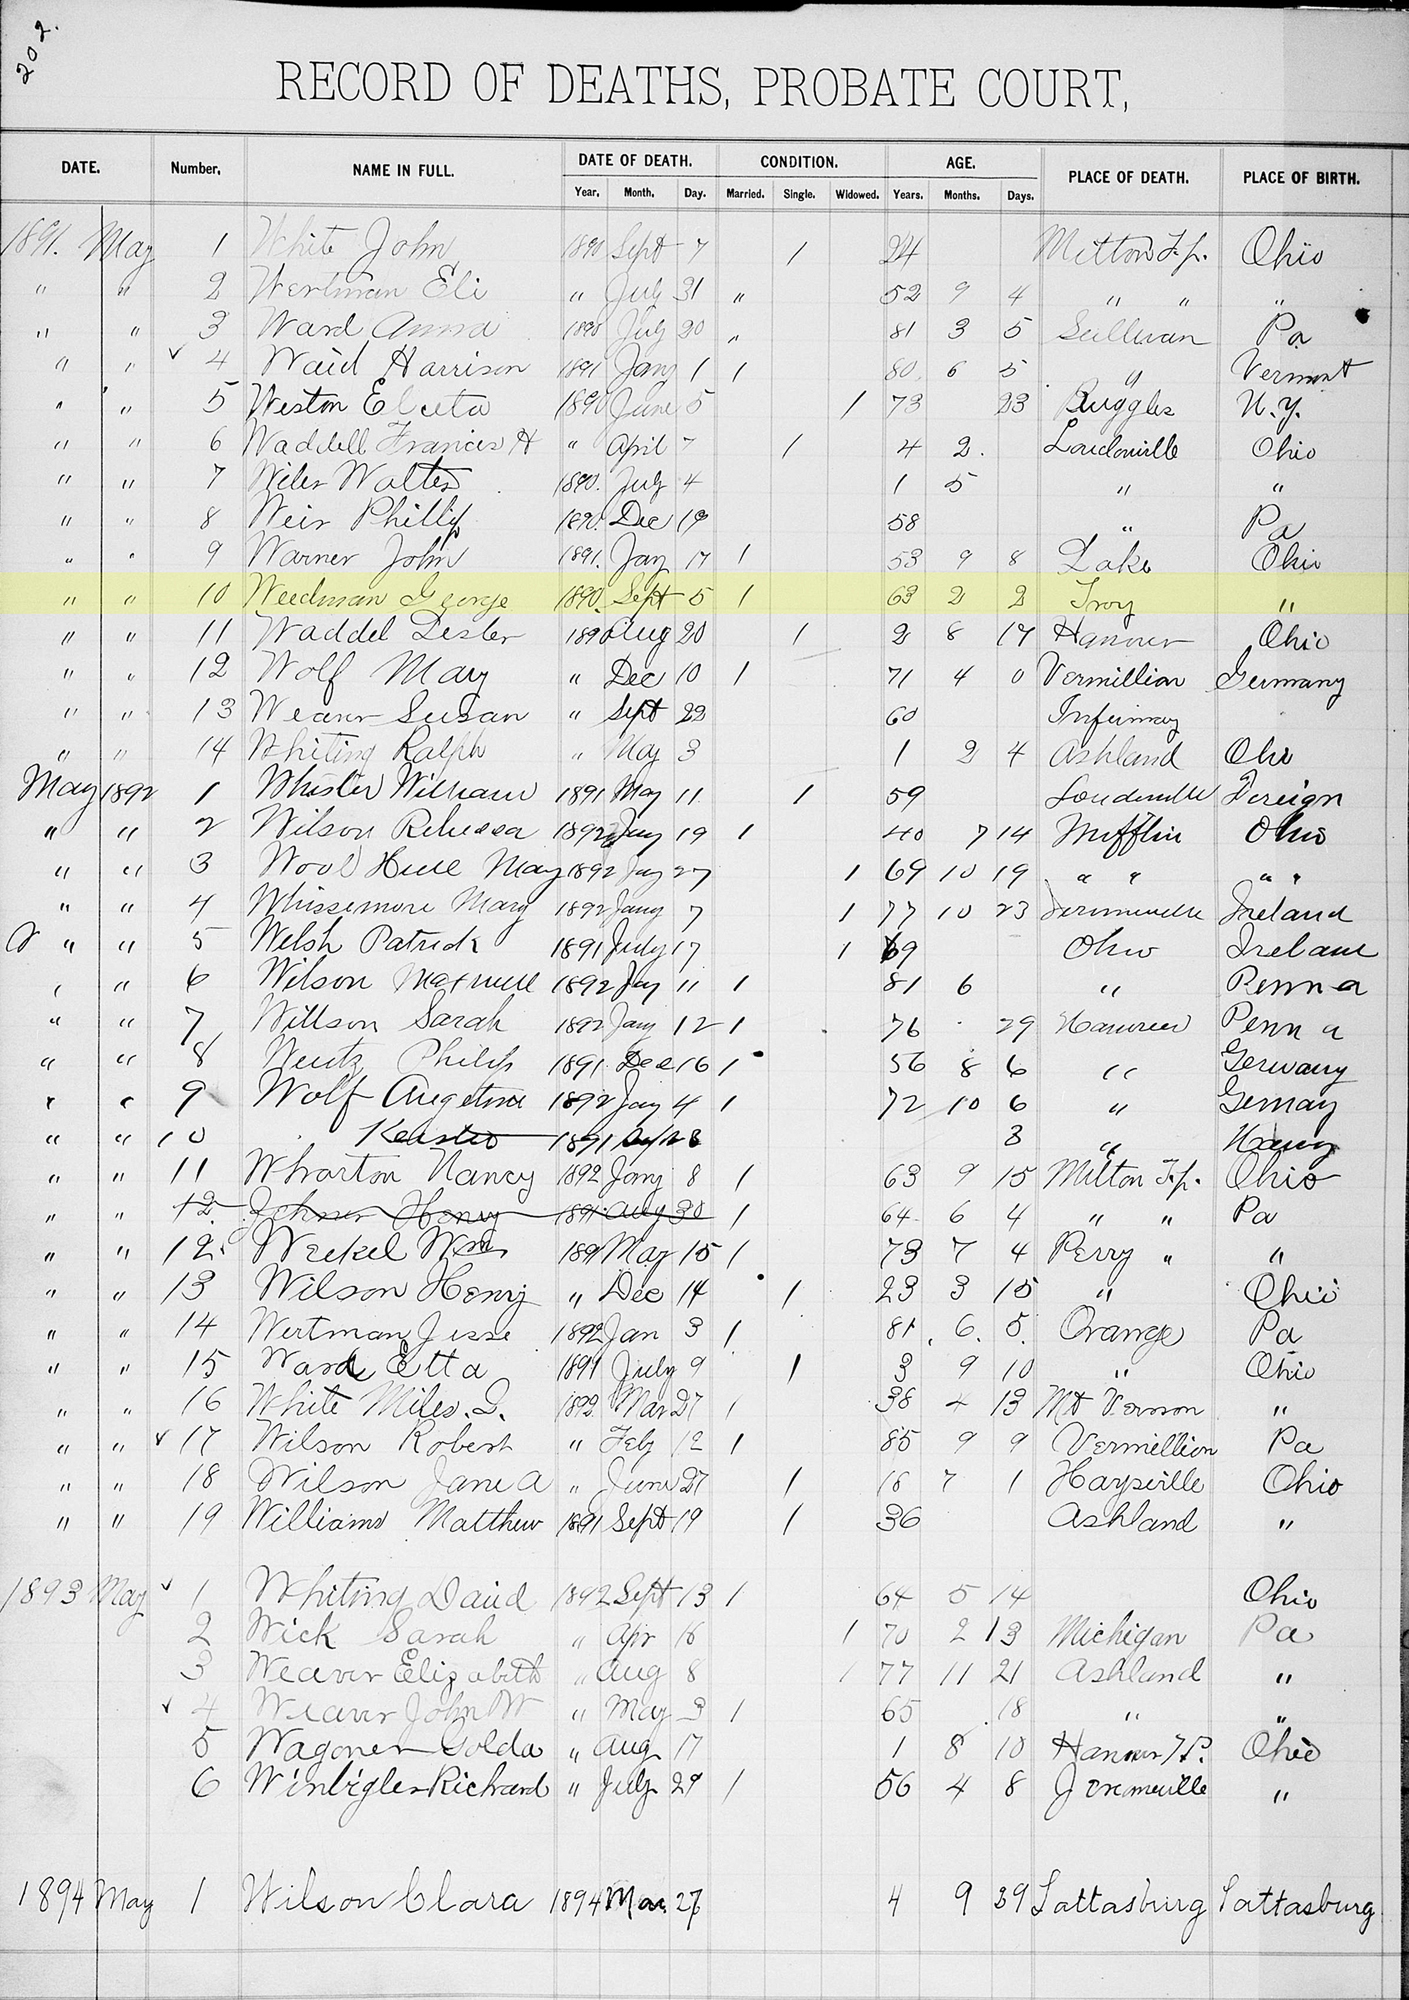 202.
RECORD OF DEATHS, PROBATE COURT,
DATE. Number. NAME IN FULL. DATE OF DEATH. CONDITION. AGE. PLACE OF DEATH. PLACE OF BIRTH.
Year. Month. Day. Married. Single. Widowed. Years. Months. Days.
1891. May 1 White John 1890 Sept 7 1 24 Milton T.p. Ohio
" " 2 Wertman Eli " July 31 " 52 9 4 " " "
" " 3 Ward Anna 1890 July 20 " 81 3 5 Sullivan Pa
" " ✓ 4 Waid Harrison 1891 Jany 1 1 80 6 5 " Vermont
" " 5 Weston Electa 1890 June 5 1 73 23 Ruggles N.Y.
" " 6 Waddell Frances H " April 7 1 4 2. Loudonville Ohio
" " 7 Wiler Walter 1890. July 4 1 5 " "
" " 8 Weir Phillip 1890. Dec 19 58 " Pa
" " 9 Warner John 1891. Jay 17 1 53 9 8 Lake Ohio
" " 10 Weedman George 1890. Sept 5 1 63 2 2 Troy "
" " 11 Waddel Lester 1890 Aug 20 1 2 8 17 Hanover Ohio
" " 12 Wolf Mary " Dec 10 1 71 4 0 Vermillion Germany
" " 13 Weaver Susan " Sept 22 60
" " 14 Whiting Ralph " May 3 1 2 4 Ashland Ohio
May 1892 1 William 1891 May 11 1 59 Loudonville Foreign
" " 2 Wilson Rebecca 1892 Jay 19 1 40 7 14 Mifflin Ohio
" " 3 May 1892 Jay 27 1 69 10 19 " " " "
" " 4 Whissemore Mary 1892 Jany 7 1 77 10 23 Ireland
" " 5 Welsh Patrick 1891 July 17 1 69 Ohio Ireland
" " 6 Wilson Maxwell 1892 Jay 11 1 81 6 " Penn a
" " 7 Willson Sarah 1892 Jany 12 1 76 29 Penn a
" " 8 Wentz Philip 1891 Dec 16 1 56 8 6 " Germany
" " 9 Wolf 1892 Jay 4 1 72 10 6 " Gemany
" " 10 1891 3 "
" " 11 Wharton Nancy 1892 Jany 8 1 63 9 15 Milton T.p. Ohio
" " 12. Henry 1891. Aug 30 1 64 6 4 " " Pa
" " 12. Weckel Wm 1891 May 15 1 73 7 4 Perry " "
" " 13 Wilson Henry " Dec 14 1 23 3 15 " Ohio
" " 14 Wertman Jesse 1892 Jan 3 1 81. 6. 5. Orange Pa
" " 15 Ward Etta 1891 July 9 1 3 9 10 " Ohio
" " 16 White Miles. 1892. Mar 27 1 38 4 13 Mt Vernon "
" " ✓ 17 Wilson Robert " Feb 12 1 85 9 9 Vermillion Pa
" " 18 Wilson Jane A " June 27 1 18 7 1 Haysville Ohio
" " 19 Williams Matthew 1891 Sept 19 1 36 Ashland "
1893 May ✓ 1 Whiting David 1892 Sept 13 1 64 5 14 Ohio
2 Wick Sarah " Apr 16 1 70 2 13 Michigan Pa
3 Weaver Elizabeth " Aug 8 1 77 11 21 Ashland "
✓ 4 Weaver John W " May 3 1 65 18 " "
5 Wagoner Golda " Aug 17 1 8 10 Hanover T.P. Ohio
6 Winbigler Richard " July 29 1 56 4 8 Jeromeville "
1894 May 1 Wilson Clara 1894 Mar. 27 4 9 29 Lattasburg Lattasburg